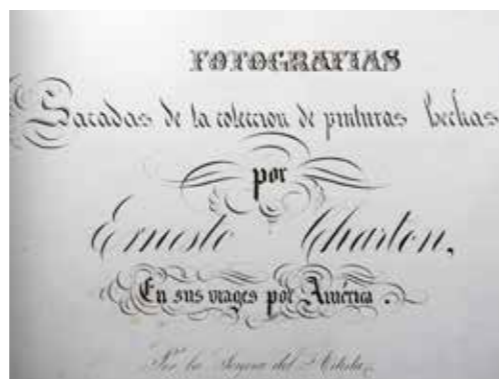 FOTOGRAFIAS
Sacadas de la coleccion de pinturas hechas
por
Ernesto Charton,
En sus viages por América.
Por la Señora del Artista